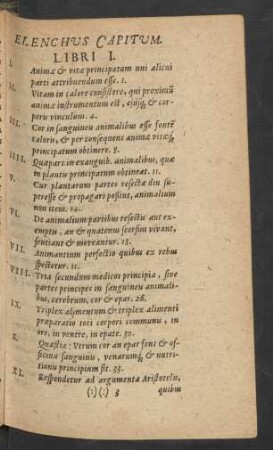 ELENCHUS CAPITUM.
LIBRI I.
I.
Animæ & vitæ principatum uni alicui
parti attribuendum esse. 1.
II.
Vitam in calore consistere, qui proximũ
animæ instrumentum est, ejusq́; & cor-
poris vinculum. 4.
III.
Cor in sanguineis animalibus esse fontẽ
caloris, & per consequens animæ vitæq́;
principatum obtinere. 8.
IIII.
Quæ pars in exanguib. animalibus, quæ
in plantis principatum obtineat. 11.
V.
Cur plantarum partes resectæ diu su-
peresse & propagari possint, animalium
non item. 14.
VI.
De animalium partibus resectis aut ex-
emptu, an & quatenus seorsim vivant,
sentiant & moveantur. 15.
VII.
Animantium perfectio quibus ex rebus
spectetur. 21.
VIII.
Tria secundum medicos principia, sive
partes principes in sanguineis animali-
bus, cerebrum, cor & epar. 26.
IX.
Triplex alimentum & triplex alimenti
præparatio toti corpori communis, in
ore, in ventre, in epate. 30.
X.
Quæstio: Utrum cor an epar fons & of-
ficina sanguinis, venarumq́; & nutri-
tionis principium sit. 33.
XI.
Respondetur ad argumenta Aristotelis,
(:) (:) 3 quibus